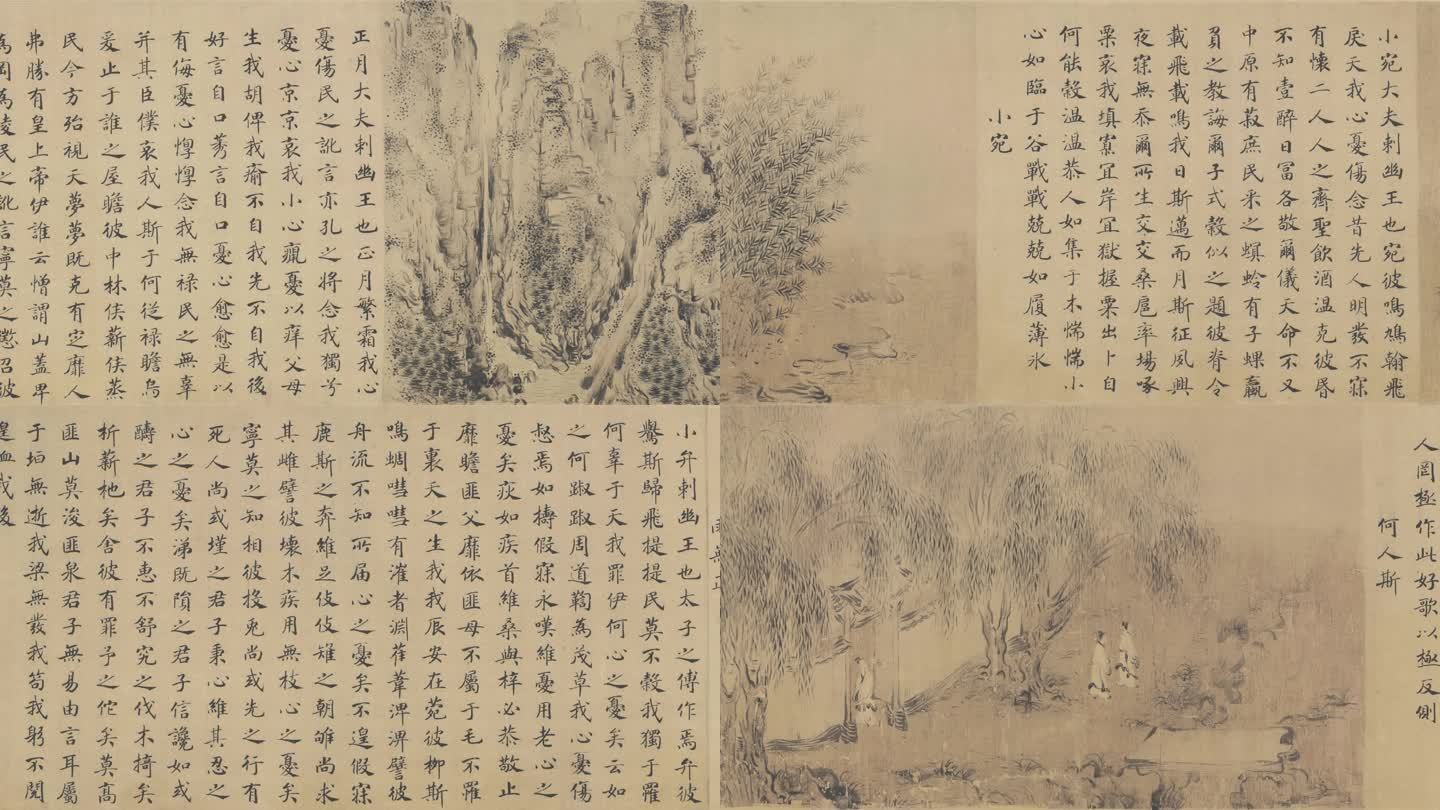 小宛大夫刺幽王也宛彼鳴鳩翰飛
戾天我心憂傷念昔先人明發不寐
有懷二人人之齊聖飲酒温克彼昏
不知壹醉日冨各敬爾儀天命不又
中原有菽庶民采之螟蛉有子蜾蠃
負之教誨爾子式穀似之題彼脊令
載飛載鳴我日斯邁而月斯征夙興
夜寐無忝爾所生交交桑扈率場啄
粟哀我填寡宜岸宜獄握粟出卜自
何能穀温温恭人如集于木惴惴小
心如臨于谷戰戰兢兢如履薄冰
小宛
正月大夫刺幽王也正月繁霜我心
憂傷民之訛言亦孔之將念我獨兮
憂心京京哀我小心癙憂以痒父母
生我胡俾我瘉不自我先不自我後
好言自口莠言自口憂心愈愈是以
有侮憂心惸惸念我無禄民之無辜
并其臣僕哀我人斯于何從禄瞻烏
爰止于誰之屋瞻彼中林侯薪侯蒸
民今方殆視天夢夢既克有定靡人
弗勝有皇上帝伊誰云憎謂山蓋卑
為岡為陵民之訛言寧莫之懲召彼
人罔極作此好歌以極反側
何人斯
小弁刺幽王也太子之傅作焉弁彼
鸒斯歸飛提提民莫不穀我獨于罹
何辜于天我罪伊何心之憂矣云如
之何踧踧周道鞫為茂草我心憂傷
惄焉如擣假寐永嘆維憂用老心之
憂矣疢如疾首維桑與梓必恭敬止
靡瞻匪父靡依匪母不屬于毛不罹
于裏天之生我我辰安在菀彼柳斯
鳴蜩嘒嘒有漼者淵萑葦淠淠譬彼
舟流不知所届心之憂矣不遑假寐
鹿斯之奔維足伎伎雉之朝雊尚求
其雌譬彼壞木疾用無枝心之憂矣
寧莫之知相彼投兔尚或先之行有
死人尚或墐之君子秉心維其忍之
心之憂矣涕既隕之君子信讒如或
醻之君子不惠不舒究之伐木掎矣
析薪杝矣舍彼有罪予之佗矣莫高
匪山莫浚匪泉君子無易由言耳屬
于垣無逝我梁無發我笱我躬不閱